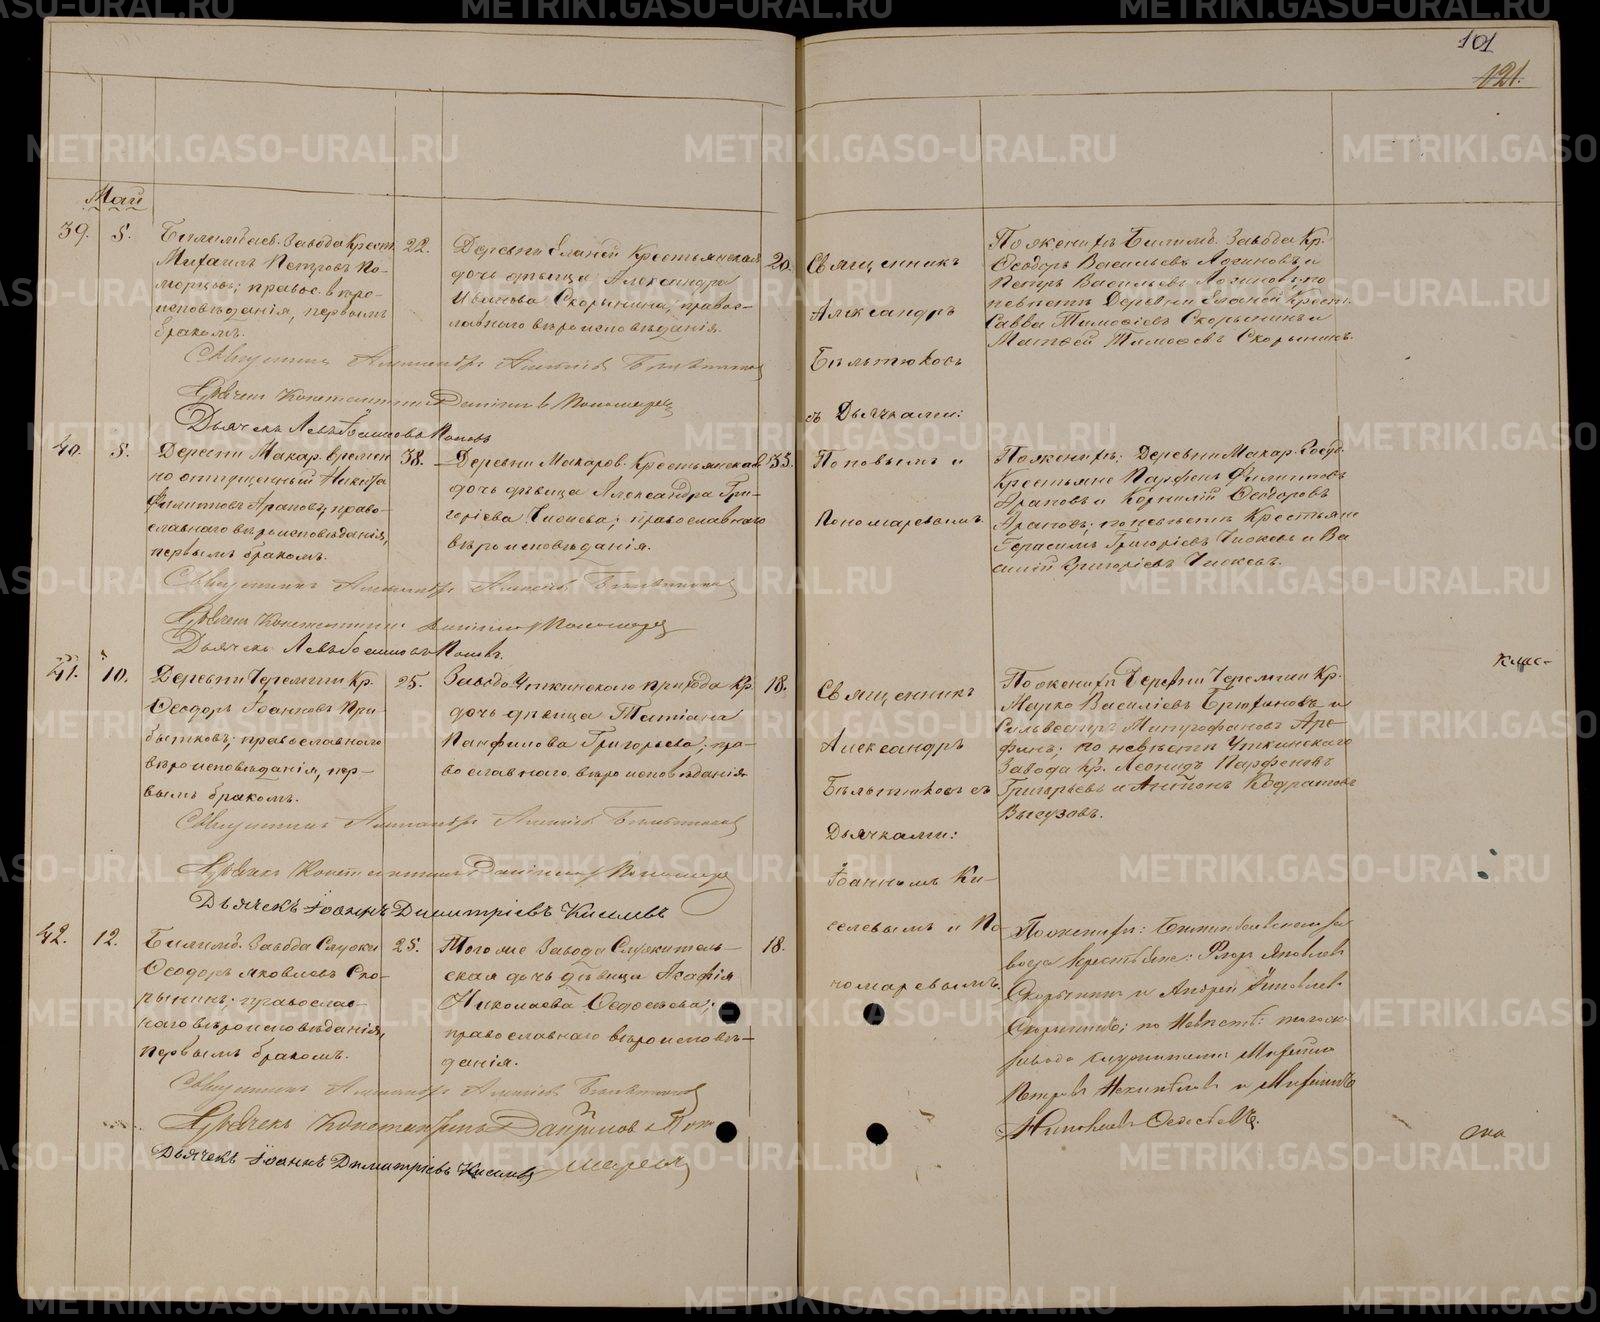 101
121.
Май
39.
5.
Билимбаев. Завода Крест.
Михаилъ Петровъ По-
морцовъ; правос. вѣро-
исповѣданія, первымъ
бракомъ.
22.
Деревни Еланей Крестьянская
дочь дѣвица Александра
Иванова Скорынина, правос-
лавнаго вѣроисповѣданія.
20.
Священникъ
Александръ
Бѣльтюковъ
съ Дьячками:
Поповымъ и
Пономаревымъ.
По женихѣ Билимб. Завода Кр.
Ѳеодоръ Васильевъ Логиновъ и
Петръ Васильевъ Логиновъ; по
невѣстѣ Деревни Еланей Крест.
Савва Тимоѳеевъ Скорынинъ и
Матвей Тимоѳеевъ Скорынинъ.
Священникъ Александръ Алексіевъ Бѣльтюковъ
Дьячекъ Константинъ Даниловъ Пономаревъ
Дьячекъ Левъ Іоанновъ Поповъ
40.
5.
Деревни Макар. времен-
но отпущенный Никита
Филиповъ Араповъ, право-
славнаго вѣроисповѣданія,
первымъ бракомъ.
38.
Деревни Макаров. Крестьянская
дочь дѣвица Александра Гри-
горіева Чиожева; православнаго
вѣроисповѣданія.
35.
По женихѣ: Деревни Макар. Госуд.
Крестьяне Парфенъ Филиповъ
Араповъ и Корнилій Ѳеодоровъ
Араповъ; по невѣстѣ Крестьяне
Герасимъ Григоріевъ Чиожевъ и Ва-
силій Григоріевъ Чиожевъ.
Священникъ Александръ Алексіевъ Бѣльтюковъ
Дьячекъ Константинъ Даниловъ Пономаревъ
Дьячекъ Левъ Іоанновъ Поповъ.
41.
10.
Деревни Черемши Кр.
Ѳеодоръ Іоанновъ При-
бытковъ; православнаго
вѣроисповѣданія, пер-
вымъ бракомъ.
25.
Завода Уткинскаго прихода Кр.
дочь дѣвица Татіана
Панфилова Григорьева; пра-
вославнаго вѣроисповѣданія
18.
Священникъ
Александръ
Бѣльтюковъ съ
Дьячками:
Іоанномъ Ки-
селевымъ и По-
номаревымъ.
По женихѣ Деревни Черемши Кр.
Марко Василіевъ Брюхановъ и
Сильвестръ Митрофановъ Аро-
финъ; по невѣстѣ Уткинскаго
Завода Кр. Леонидъ Парфеновъ
Григорьевъ и Антонъ Кодратовъ
Высузовъ.
клас-
Священникъ Александръ Алексіевъ Бѣльтюковъ
Дьячекъ Константинъ Даниловъ Пономаревъ
Дьячекъ Іоаннъ Димитріевъ Киселевъ
42.
12.
Билимб. Завода Служи.
Ѳеодоръ Яковлевъ Ско-
рынинъ; православ-
наго вѣроисповѣданія,
первымъ бракомъ.
25.
Того же Завода Служитель-
ская дочь дѣвица Агафія
Николаева Ѳедосѣева;
православнаго вѣроисповѣ-
данія.
18.
По женихѣ: Билимбаевскаго за-
вода Крестьяне: Флоръ Яковлевъ
Скорынинъ и Андрей Яковлевъ
Скорынинъ; по невѣстѣ: тогоже
завода служители Михаилъ
Петровъ и Михаилъ
Николаевъ Ѳедосѣевъ.
Священникъ Александръ Алексіевъ Бѣльтюковъ
Дьячекъ Константинъ Даниловъ Поно
маревъ
Дьячекъ Іоаннъ Димитріевъ Киселевъ
METRIKI.GASO-URAL.RU